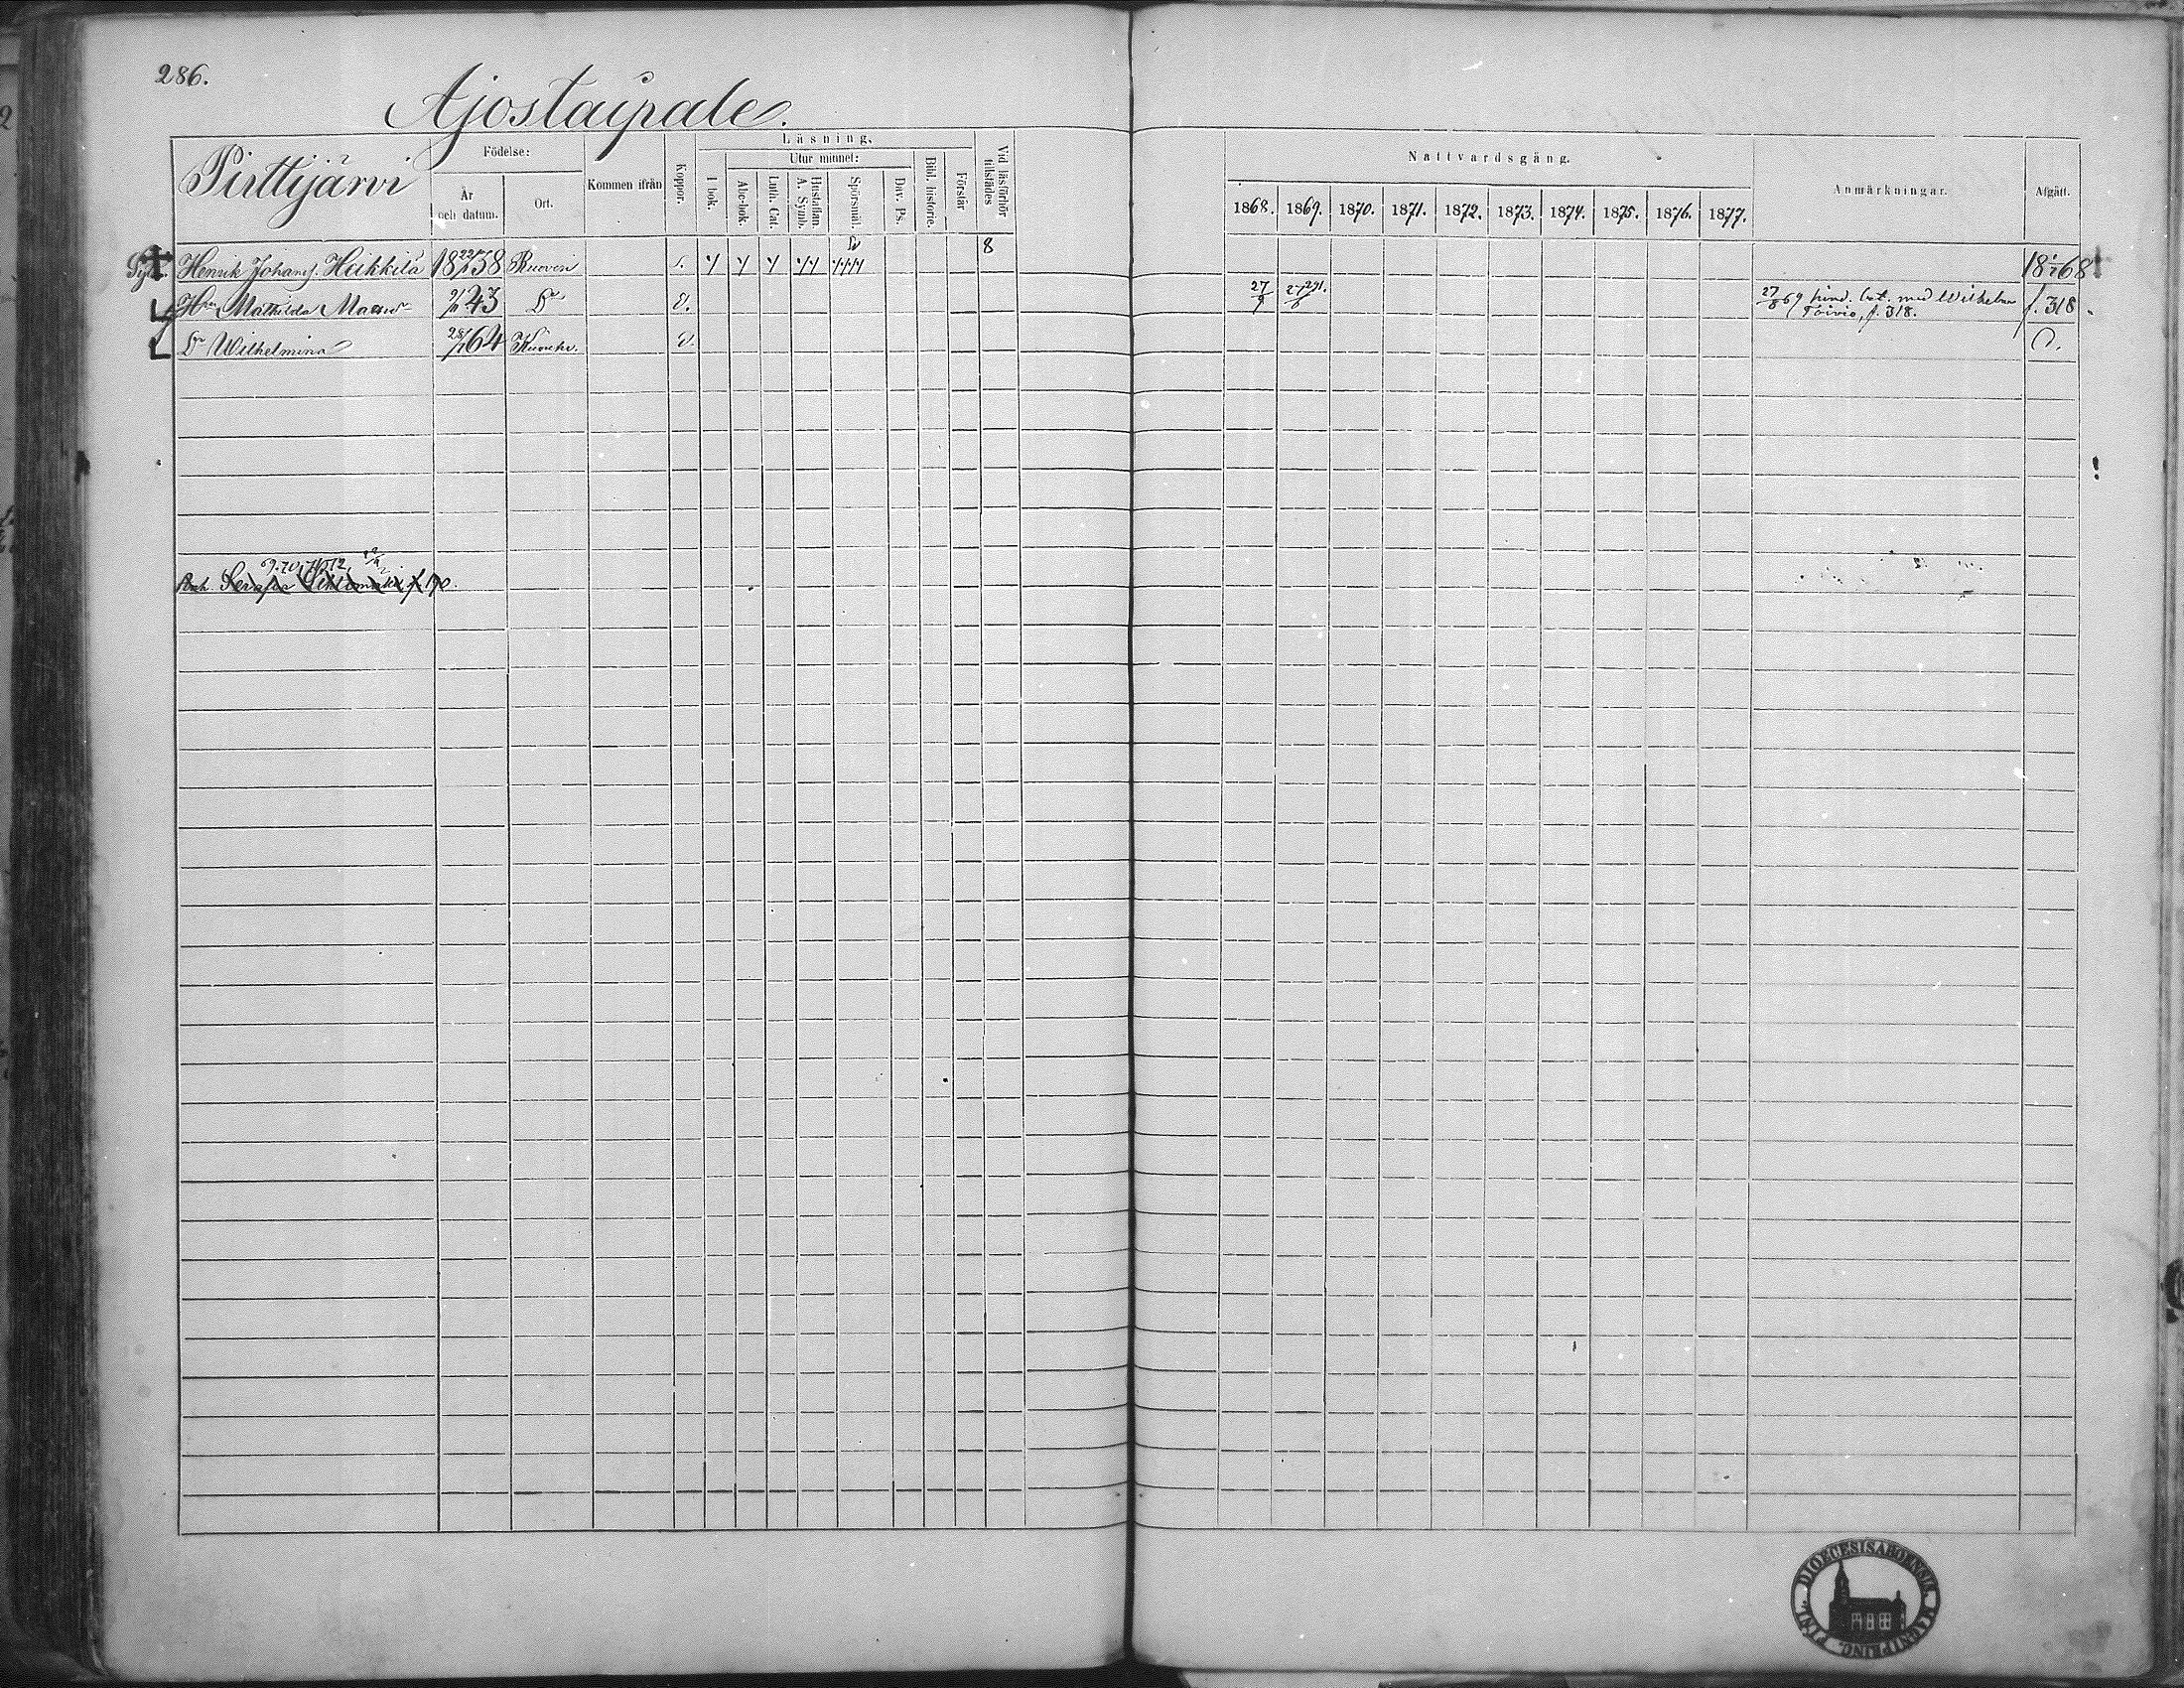 286.
Ajostaipale.
Pirttijärvi
Födelse:
År och datum.
Ort.
Kommen ifrån
Koppor.
Läsning.
I bok.
Utur minnet:
Abc-bok
Luth. Cat.
Hustaflan. A. Symb.
Spörsmål.
Dav. Ps.
Bibl. historie.
Förstår
Vid läsförhör tillstädes
Nattvardsgång.
1868. 1869. 1870. 1871. 1872. 1873. 1874. 1875. 1876. 1877.
Anmärkningar.
Afgått.
Henrik Johans. Heikkilä 18 38 Ruovesi 8 18 68
Mathilda 43 Do v. 27/9 27/8 69 hind. bet. med Wilhelm f. 318.
Toivio, f. 318.
Dr Wilhelmina 64 v.
69.70.71.72.
f. 170.
DIOECESIS ABOENSIS MAGNI PRINC. FINL.